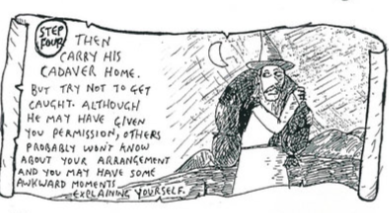 STEP
FOUR
THEN
CARRY HIS
CADAVER HOME.
BUT TRY NOT TO GET
CAUGHT. ALTHOUGH
HE MAY HAVE GIVEN
YOU PERMISSION, OTHERS
PROBABLY WON'T KNOW
ABOUT YOUR ARRANGEMENT
AND YOU MAY HAVE SOME
AWKWARD MOMENTS
EXPLAINING YOURSELF.